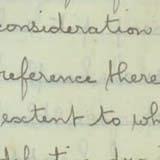 consideration
reference there
extent to wh